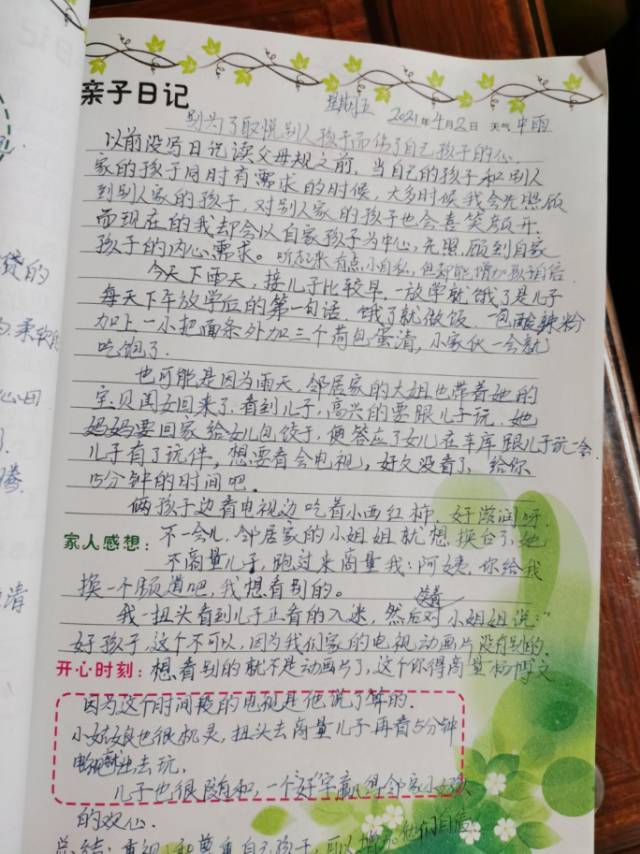 亲子日记
星期五 2021年4月2日 天气 中雨
别为了取悦别人孩子而伤了自己孩子的心.
以前没写日记读父母规之前,当自己的孩子和别人
家的孩子同时有需求的时候,大多时候我会先照顾
到别人家的孩子,对别人家的孩子也会喜笑颜开.
而现在的我却会以自家孩子为中心,先照顾到自家
孩子的内心需求。听起来有点小自私,但却能增加孩子自信.
今天下雨天,接儿子比较早.一放学就饿了是儿子
每天下午放学后的第一句话.饿了就做饭.一包酸辣粉
加上一小把面条外加三个荷包蛋清,小家伙一会就
吃饱了.
也可能是因为雨天,邻居家的大姐也带着她的
宝贝闺女回来了.看到儿子,高兴的要跟儿子玩.她
妈妈要回家给女儿包饺子,便答应了女儿在车库跟儿子玩一会.
儿子有了玩伴,想要看会电视,好久没看了,给你
15分钟的时间吧.
俩孩子边看电视边吃着小西红柿,好滋润呀.
家人感想:
不一会儿,邻居家的小姐姐就想换台了,她
不商量儿子,跑过来商量我:阿姨,你给我
换一个频道吧,我想看别的。
我一扭头看到儿子正看的入迷,然后对小姐姐说:"
好孩子,这个不可以,因为我们家的电视动画片没有别的.
开心时刻:
想看别的就不是动画片了,这个你得商量杨博文
因为这个时间段的电视是他说了算的.
小姑娘也很机灵,扭头去商量儿子再看5分钟
出去玩.
儿子也很随和,一个"好"字赢得邻家小
的欢心.
总结:重视和尊重自己孩子,可以增加他们自信
贷的
柔软
心田
腾.
清